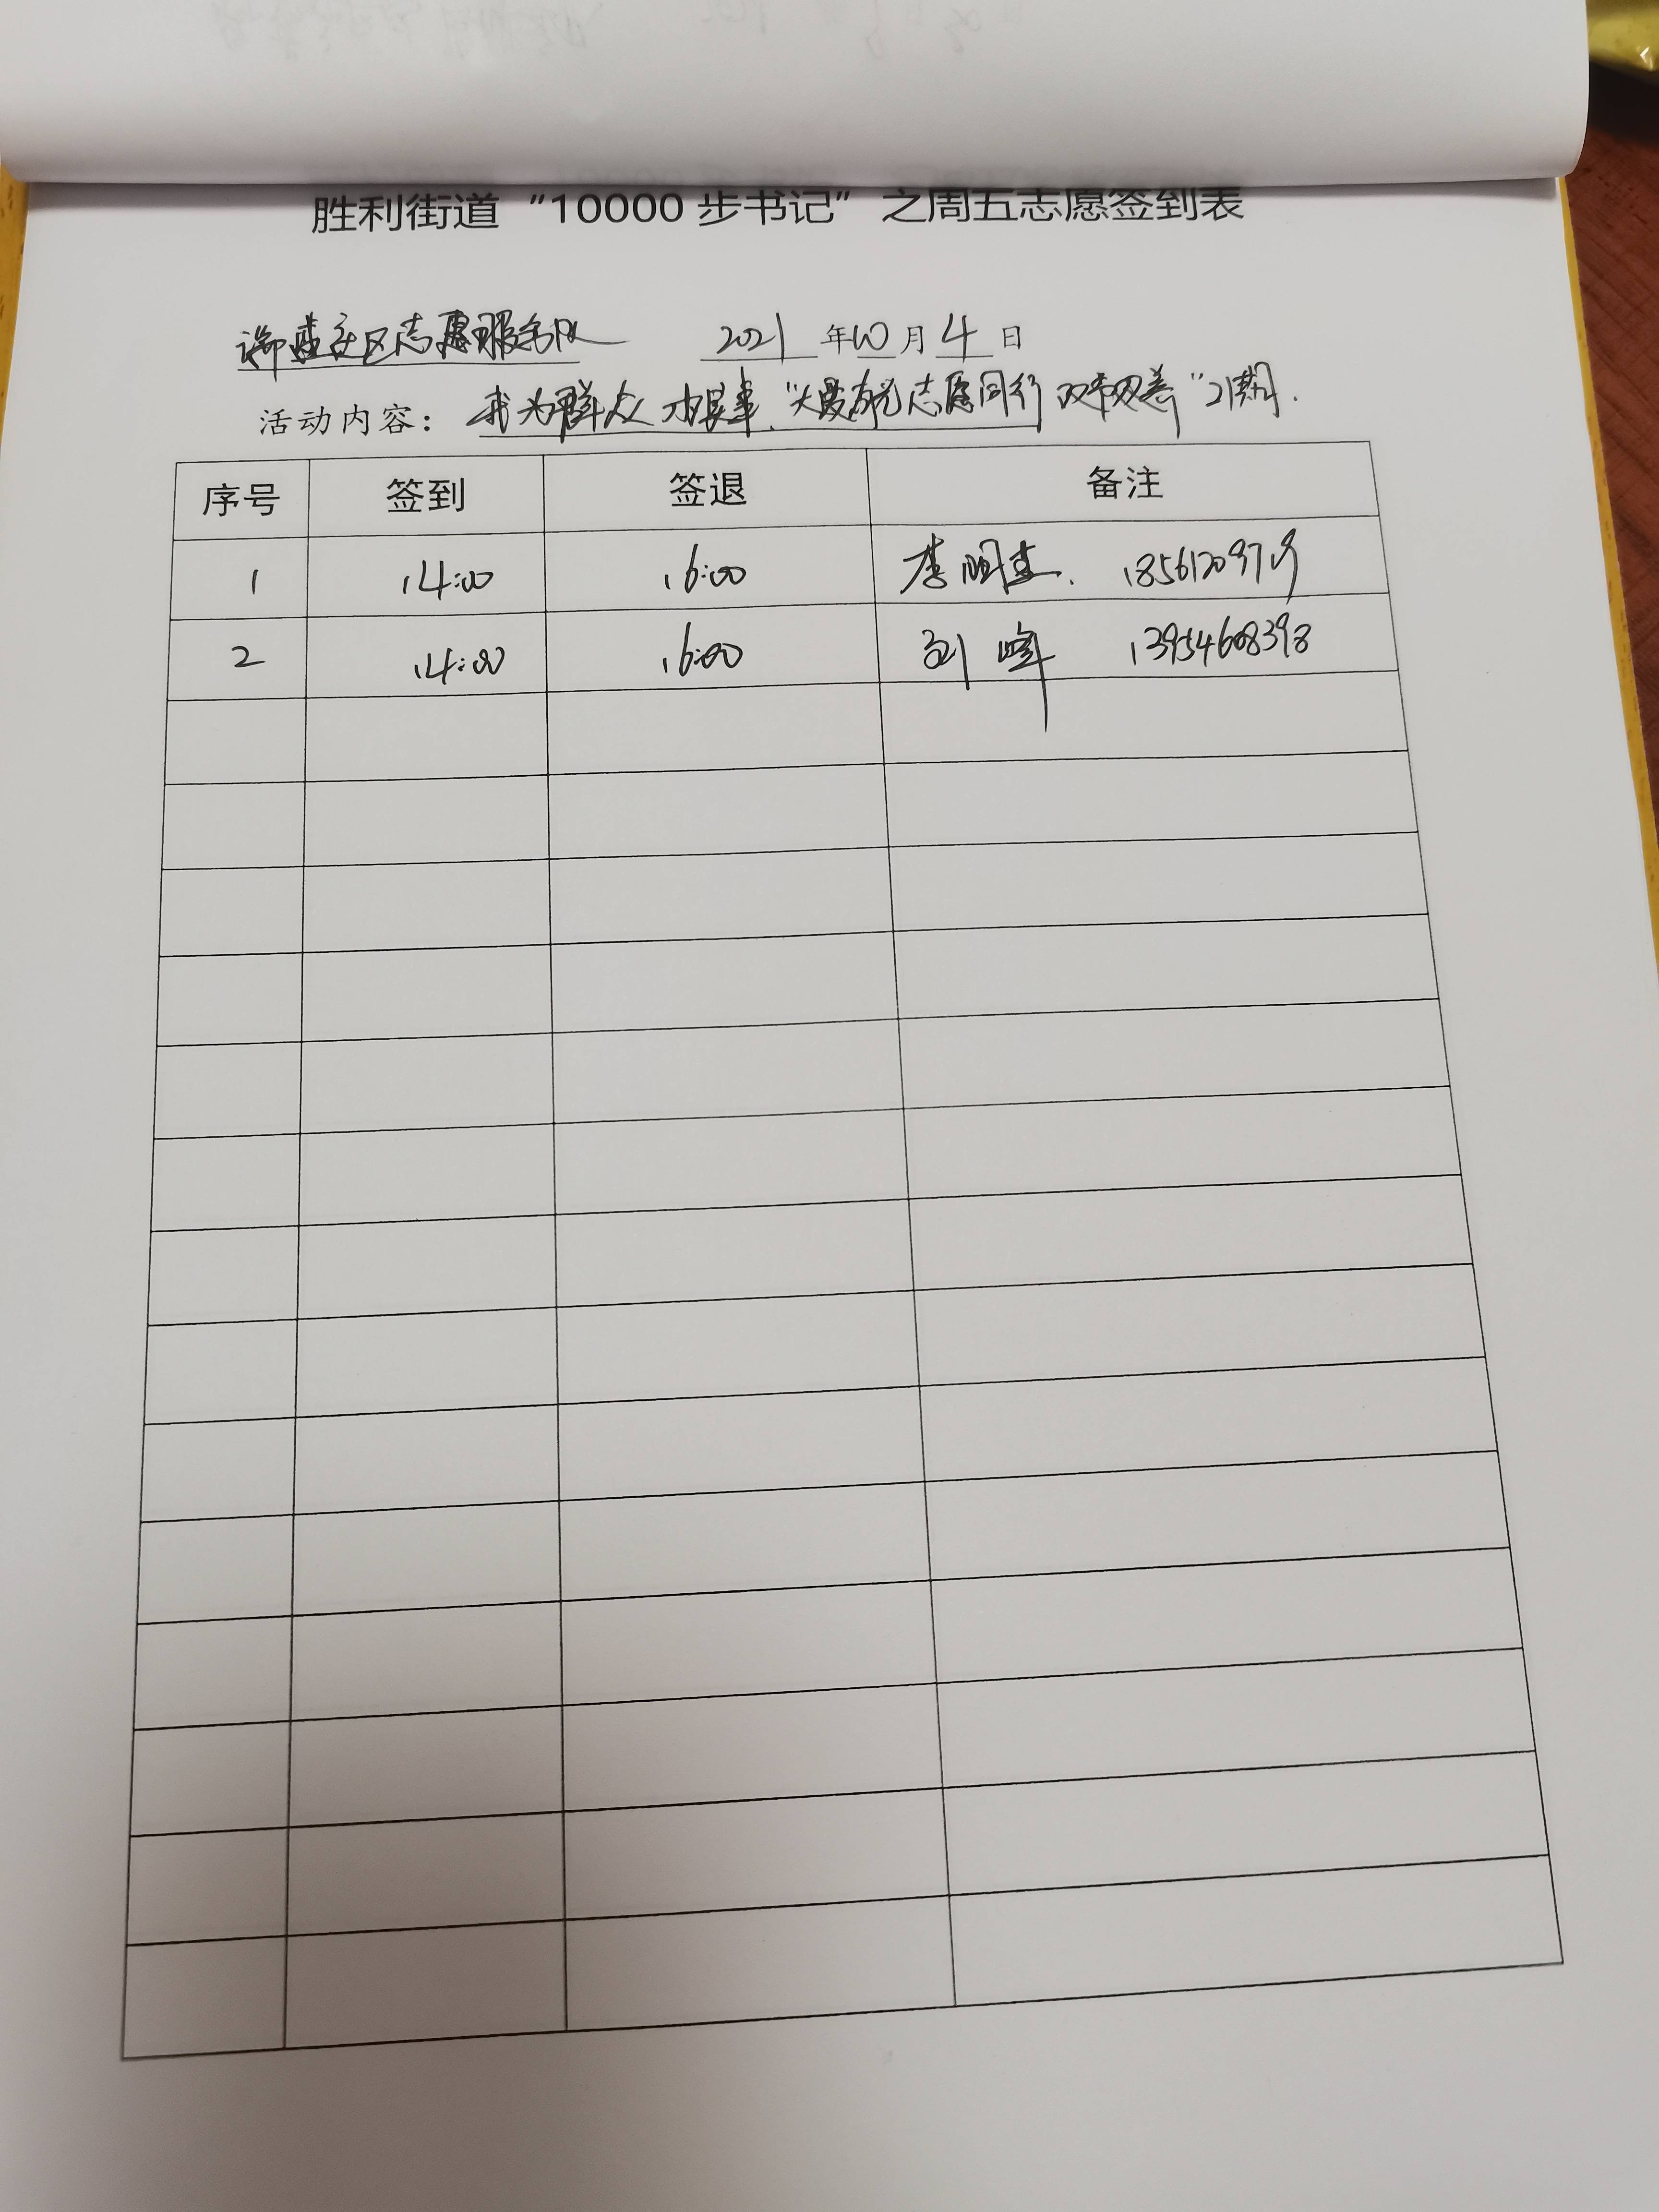 胜利街道“10000步书记”之周五志愿签到表
社区志愿服务队 2021 年 10 月 4 日
活动内容： 我为群众办实事.“大爱有光志愿同行 双节双养”21期.
序号 签到 签退 备注
1 14:00 16:00 李明
2 14:00 16:00 刘峰 13954608398